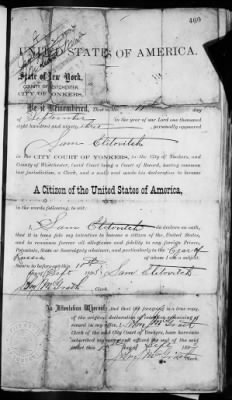 400
UNITED STATES OF AMERICA.
State of New York,
COUNTY OF WESTCHESTER
CITY OF YONKERS,
Be it Remembered, That on the day
of September in the year of our Lord one thousand
eight hundred and ninety personally appeared
Sam
in the CITY COURT OF YONKERS, in the City of Yonkers, and
County of Westchester, (said Court being a Court of Record, having common
law jurisdiction, a Clerk, and a seal) and made his declaration to become
A Citizen of the United States of America,
in the words following, to wit:
I, Sam do declare on oath,
that it is bona fide my intention to become a citizen of the United States,
and to renounce forever all allegiance and fidelity to any foreign Prince,
Potentate, State or Sovereignty whatever, and particularly to the Czar of
Russia of whom I am a subject.
Sworn to before me this
day of Sept Sam
McGrath, Clerk.
In Attestation Whereof, and that the foregoing is a true copy
of the original declaration of intention remaining of
record in my office, I,
Clerk of the said City Court of Yonkers, have hereunto
subscribed my name and affixed the seal of the said
Court this day of Sept
McGrath
Clerk.